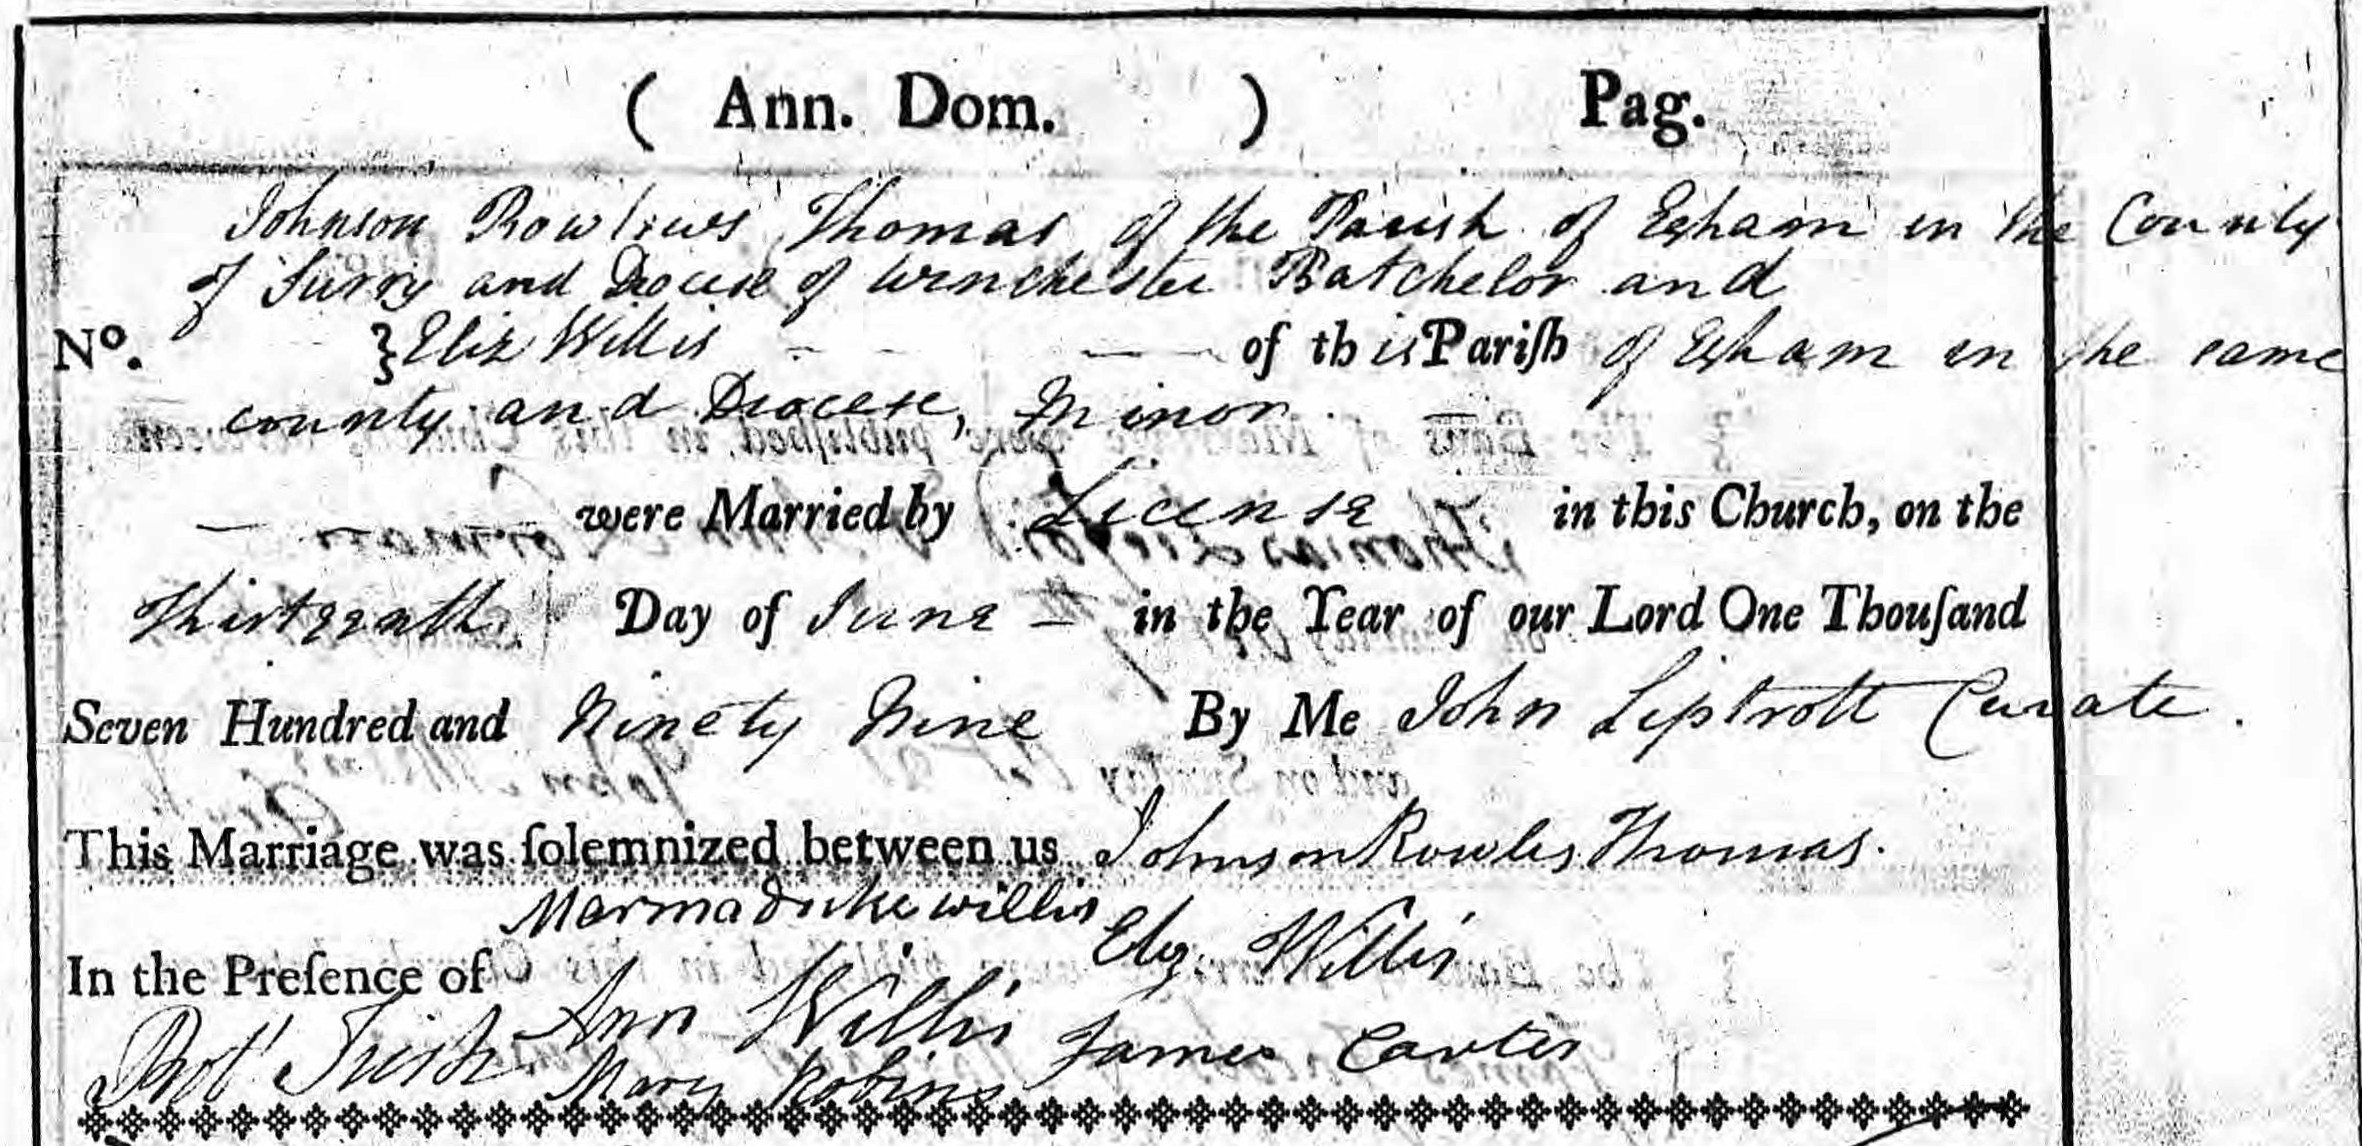 ( Ann. Dom. ) Pag.
Johnson Rowles Thomas of the Parish of Egham in the County
of Surry and Diocese of Winchester Batchelor and
No. } Eliz Willis of this Pariſh of Egham in the same
county and Diocese, Minor
were Married by License in this Church, on the
Thirteenth Day of June in the Year of our Lord One Thouſand
Seven Hundred and Ninety Nine By Me John Liptrott Curate.
This Marriage was ſolemnized between us Johnson Rowles Thomas.
Marmaduke Willis Eliz. Willis
In the Preſence of Ann Willis James Carter
Robt Mary Robins